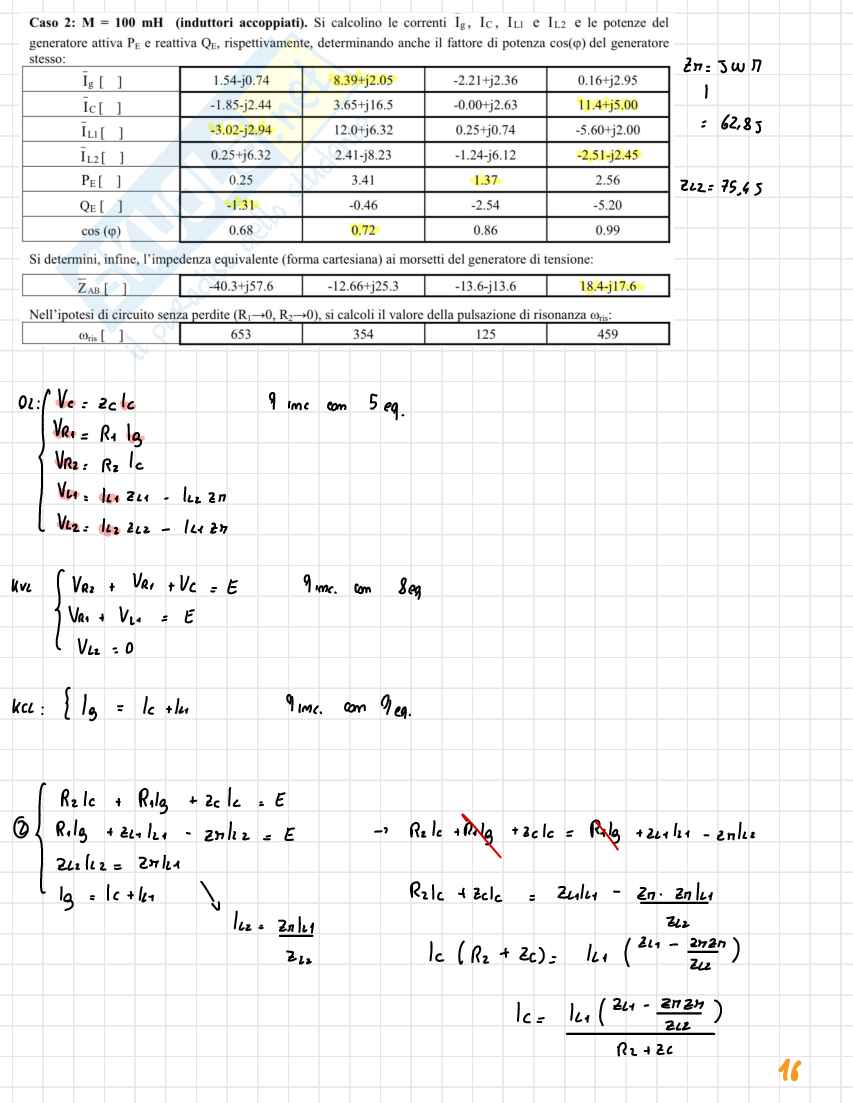 Caso 2: M = 100 mH (induttori accoppiati). Si calcolino le correnti Īg, IC, IL1 e IL2 e le potenze del
generatore attiva PE e reattiva QE, rispettivamente, determinando anche il fattore di potenza cos(φ) del generatore
stesso:
Īg [ ] 1.54-j0.74 8.39+j2.05 -2.21+j2.36 0.16+j2.95
ĪC [ ] -1.85-j2.44 3.65+j16.5 -0.00+j2.63 11.4+j5.00
ĪL1[ ] -3.02-j2.94 12.0+j6.32 0.25+j0.74 -5.60+j2.00
ĪL2[ ] 0.25+j6.32 2.41-j8.23 -1.24-j6.12 -2.51-j2.45
PE[ ] 0.25 3.41 1.37 2.56
QE [ ] -1.31 -0.46 -2.54 -5.20
cos (φ) 0.68 0.72 0.86 0.99
Si determini, infine, l'impedenza equivalente (forma cartesiana) ai morsetti del generatore di tensione:
Z̄AB [ ] -40.3+j57.6 -12.66+j25.3 -13.6-j13.6 18.4-j17.6
Nell'ipotesi di circuito senza perdite (R1→0, R2→0), si calcoli il valore della pulsazione di risonanza ωris:
ωris [ ] 653 354 125 459
Zm = Jωm
= 62,8J
ZL2 = 75,4J
OL: Vc = Zc Ic
VR1 = R1 Ig
VR2 = R2 Ic
VL1 = IL1 ZL1 - IL2 Zm
VL2 = IL2 ZL2 - IL1 Zm
9 inc con 5 eq.
KVL VR2 + VR1 + Vc = E
VR1 + VL1 = E
VL2 = 0
9 inc. con 8eq
KCL: { Ig = Ic + IL1
9 inc. con 9 eq.
② R2Ic + R1Ig + Zc Ic = E
R1Ig + ZL1IL1 - ZmIL2 = E → R2Ic + R1Ig + ZcIc = R1Ig + ZL1IL1 - ZmIL2
ZL2IL2 = ZmIL1
Ig = Ic + IL1
IL2 = ZmIL1 / ZL2
R2Ic + ZcIc = ZL1IL1 - Zm · ZmIL1 / ZL2
Ic (R2 + Zc) = IL1 (ZL1 - ZmZm / ZL2)
Ic = IL1 (ZL1 - ZmZm / ZL2) / R2 + Zc
16